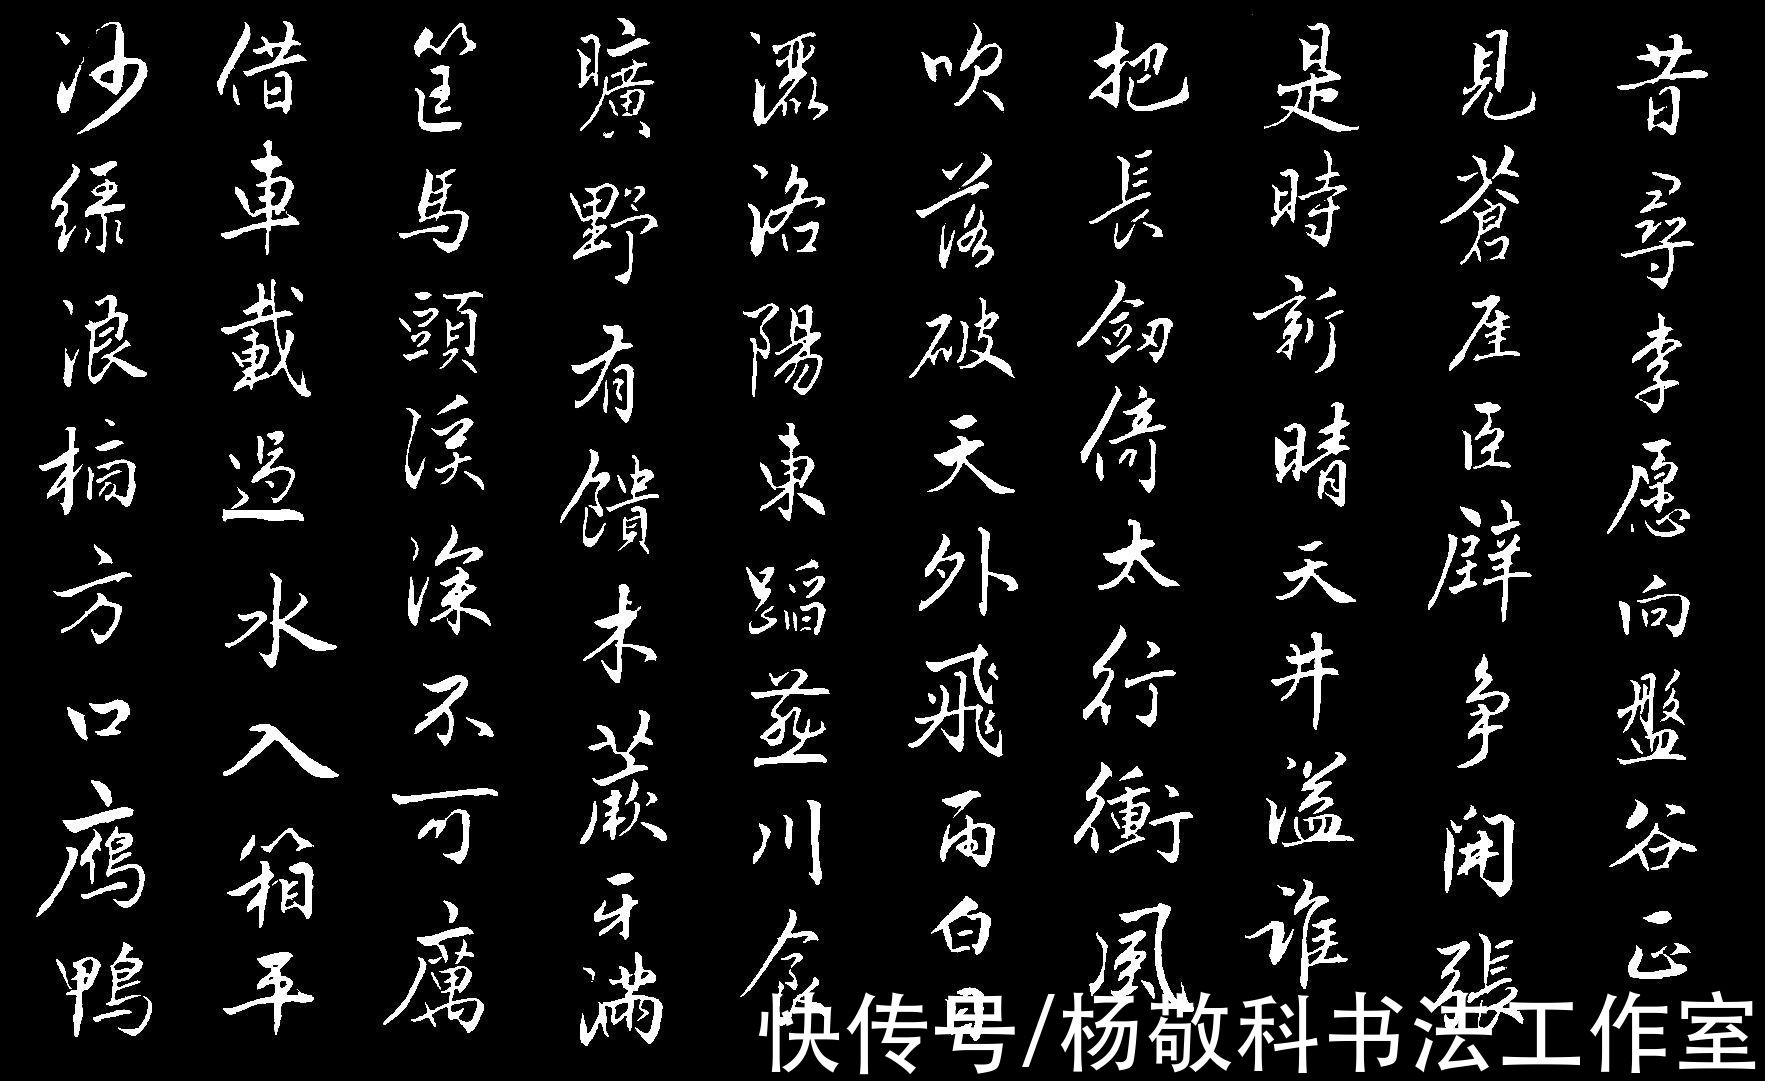 昔尋李愿向盤谷正
見蒼崖臣壁争開張
是時新晴天井溢誰
把長劒倚太行衝風
吹落破天外飛雨白日
灑洛陽東蹈燕川食
曠野有饋木蕨牙满
筐馬頭溪深不可厲
借車載過水入箱平
沙緑浪榜方口鴈鴨
快传号/杨敬科书法工作室